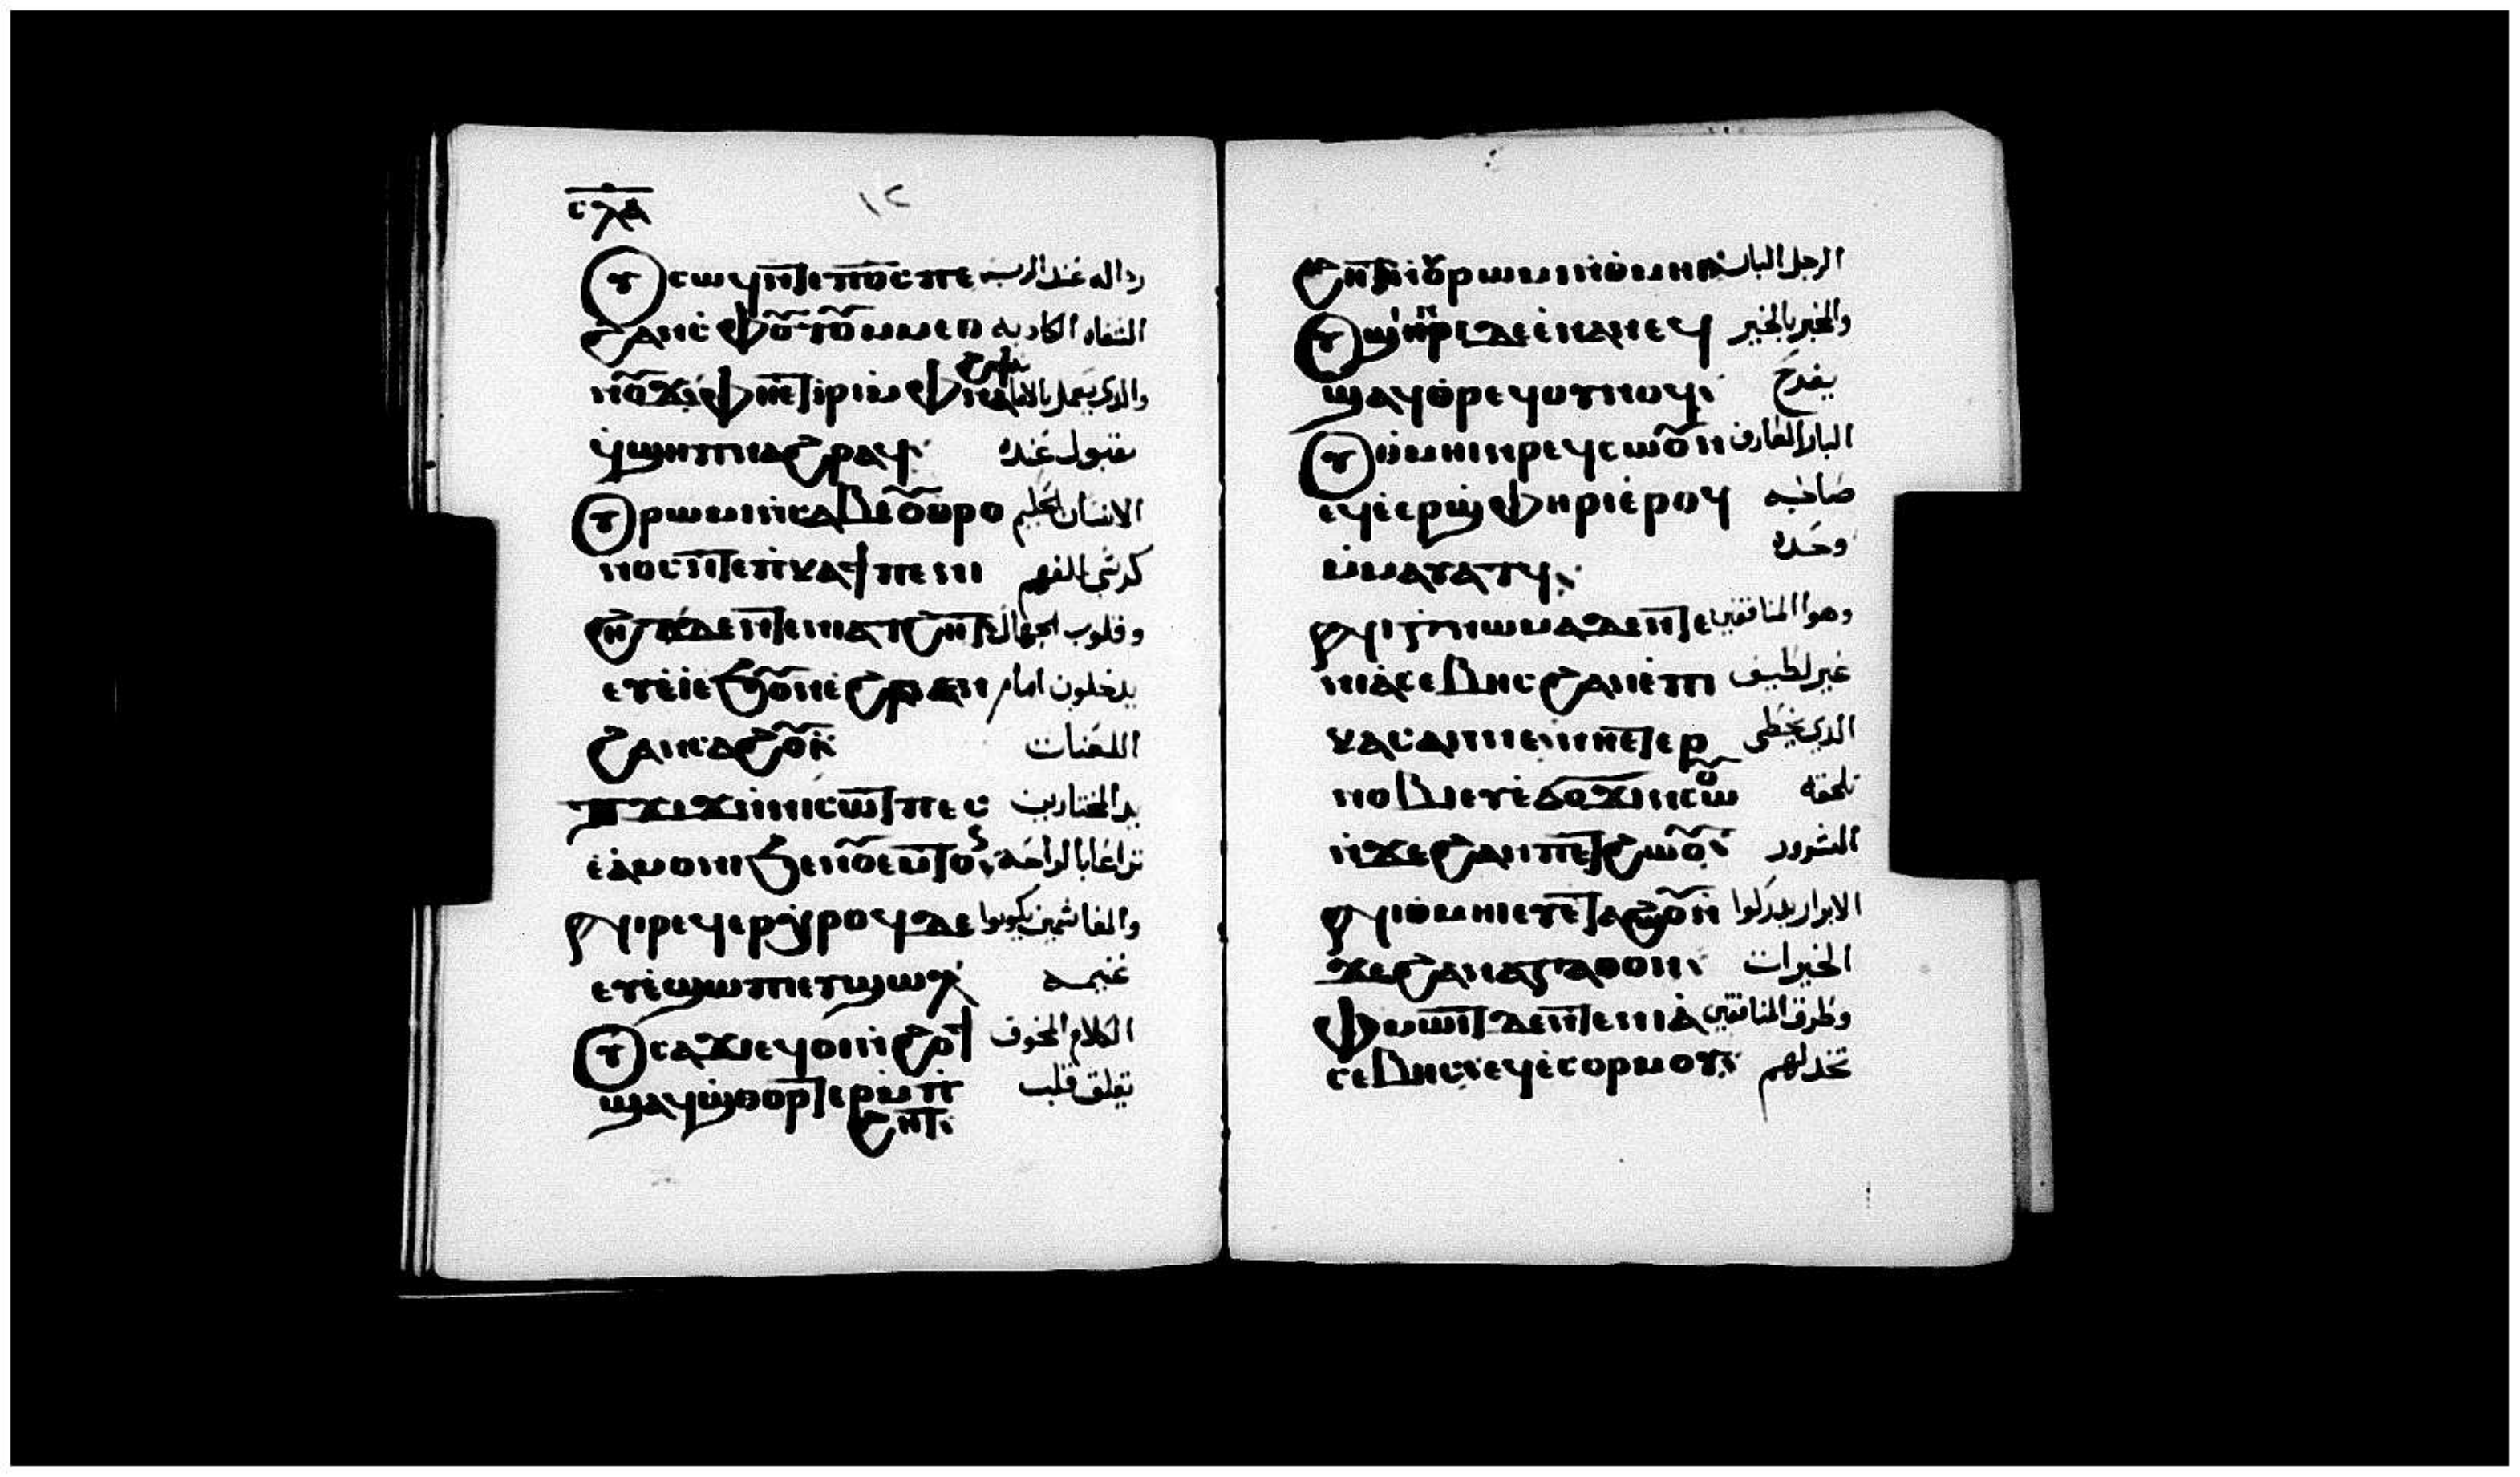 ⲥⲗⲁ
١٢
ⲟⲩⲥⲱϥ ⲛⲧⲉ ⲡⲟⲥ ⲡⲉ رداله عند الرب
ϩⲁⲛⲥⲫⲟⲧⲟⲩ ⲙⲙⲉⲑ الشفاه الكادبه
ⲛⲟⲩϫ ⲫⲏ ⲉⲧⲓⲣⲓ ⲙⲫⲛⲁϩϯ والدي يعمل بالامانه
ϥϣⲏⲡ ⲛⲁϩⲣⲁϥ مقبول عنده
ⲟⲩⲣⲱⲙⲓ ⲛⲕⲁⲧϩⲉ ⲟⲩⲑⲣⲟ الانسان الحكيم
ⲛⲟⲥ ⲛⲧⲉ ⲡⲕⲁϯ ⲡⲉ كرسي الفهم
ⲡϩⲏⲧ ⲇⲉ ⲛⲧⲉ ⲛⲓⲁⲧϩⲏⲧ وقلوب الجهال
ⲉⲩⲉⲓ ⲉϧⲟⲩⲛ ⲉϩⲣⲉⲛ يدخلون امام
ϩⲁⲛⲥⲁϩⲟⲩⲓ اللعنات
ⲧϫⲓϫ ⲛⲛⲓⲥⲱⲧⲡ ⲉⲥ يد المختارين
ⲉⲁⲙⲟⲛⲓ ϧⲉⲛ ⲟⲩⲉⲙⲧⲟⲛ
ⲛⲓⲣⲉϥⲉⲣⲭⲣⲟϥ ⲇⲉ والغاشمين يكونوا
ⲉⲩⲉϣⲱⲡⲓ ⲉⲩϣⲱⲗ غنيمه
ⲟⲩⲥⲁϫⲓ ⲉϥⲟⲓ ⲛϩⲟϯ الكلام المخوف
ϣⲁϥϣⲑⲟⲣⲧⲉⲣ ⲙⲡ يقلق قلب
ϩⲏⲧ
ϩⲏⲧ ⲛⲟⲩⲣⲱⲙⲓ ⲛⲑⲙⲏⲓ الرجل البار
ⲟⲩϣⲓⲛⲓ ⲇⲉ ⲉⲛⲁⲛⲉϥ والخبر بالخير
ϣⲁϥⲑⲣⲉϥⲟⲩⲛⲟϥ يفرح
ⲟⲩⲑⲙⲏⲓ ⲛⲣⲉϥⲥⲱⲟⲩⲛ البار العارف
ⲉϥⲉⲉⲣϣⲫⲏⲣ ⲉⲣⲟϥ صاحبه
ⲙⲙⲁⲩⲁⲧϥ وحده
ⲛⲓⲅⲛⲱⲙⲏ ⲇⲉ ⲛⲧⲉ وهوا المنافقين
ⲛⲓⲁⲥⲉⲃⲏⲥ ϩⲁⲛⲉⲡⲓ غير لطيف
ⲕⲏⲥ ⲁⲛ ⲛⲉ ⲛⲏ ⲉⲧⲉⲣ الدي يخطى
ⲛⲟⲃⲓ ⲉⲩⲉϭⲟϫⲓ ⲛⲥⲱⲟⲩ تلحقه
ⲛϫⲉ ϩⲁⲛⲡⲉⲧϩⲱⲟⲩ الشرور
ⲛⲓⲑⲙⲏⲓ ⲉⲩⲉⲧⲁϩⲱⲟⲩ الابرار يدركوا
ⲛϫⲉ ϩⲁⲛⲁⲅⲁⲑⲟⲛ الخيرات
ⲫⲙⲱⲓⲧ ⲇⲉ ⲛⲧⲉ ⲛⲓⲁ وطرق المنافقين
ⲥⲉⲃⲏⲥ ⲉϥⲉⲥⲟⲣⲙⲟⲩ تخدلهم